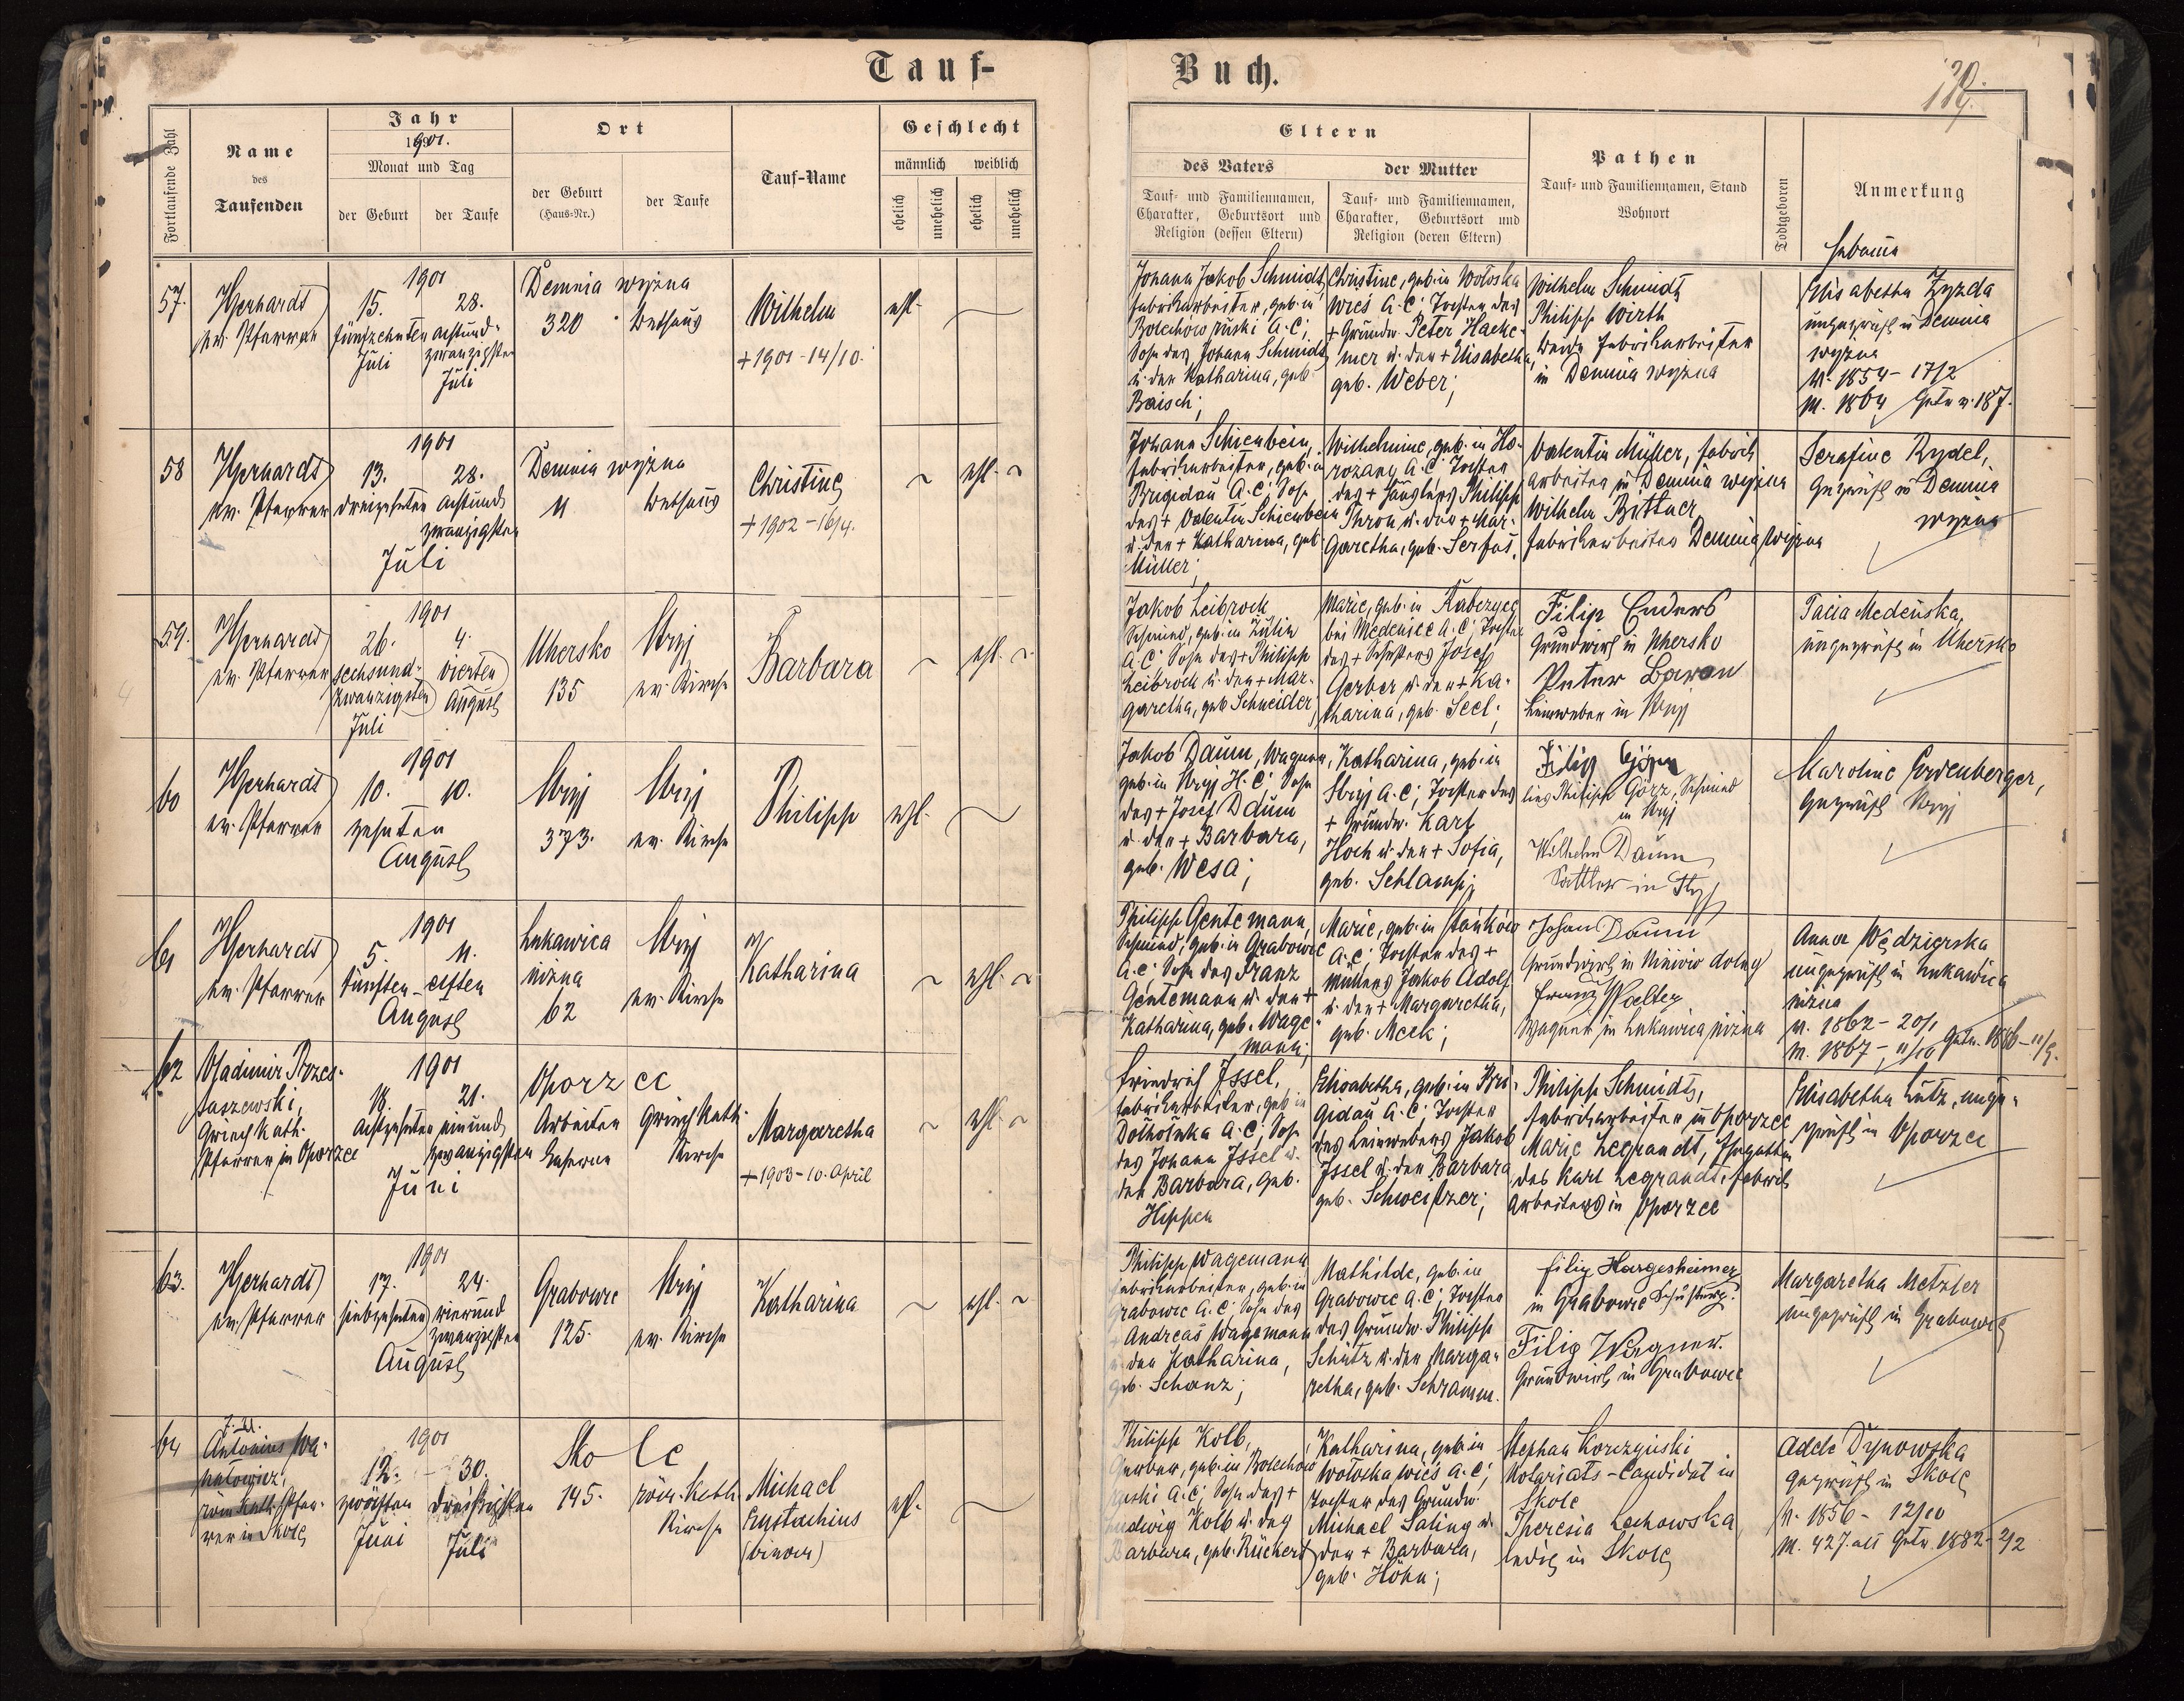 Tauf-
Buch.
Fortlaufende Zahl
Name
des
Taufenden
Jahr
1901.
Monat und Tag
der Geburt
der Taufe
Ort
der Geburt
(Haus-Nr.)
der Taufe
Tauf-Name
Geschlecht
männlich
weiblich
ehelich
unehelich
ehelich
unehelich
Eltern
des Vaters
der Mutter
Tauf- und Familiennamen,
Charakter, Geburtsort und
Religion (dessen Eltern)
Tauf- und Familiennamen,
Charakter, Geburtsort und
Religion (deren Eltern)
Pathen
Tauf- und Familiennamen, Stand
Wohnort
Todtgeboren
Anmerkung
Hebamme
57.
ev. Pfarrer
1901
15. 28.
fünfzehnten achtund-
zwanzigsten
Juli
Juli
Demnia wyzna
320 Bethaus
Wilhelm
+ 1901 - 14/10.
ehl.
Johann Jakob Schmidt,
Fabrikarbeiter, geb. in
Bolechow ruski A. C.;
Sohn des Johann Schmidt
u. der Katharina, geb.
Baisch;
Christine, geb. in Wołoska
Wieś A. C. Tochter des
+ Grundw. Peter Hacke-
mer u. der + Elisabetha,
geb. Weber;
Wilhelm Schmidt
Philipp Wirth
beide Fabrikarbeiter
in Demnia wyzna
Elisabetha Zyzda
ungeprüft in Demnia
wyzna
V. 1854 - 17/2
M. 1864
58
ev. Pfarrer
1901
13. 28.
dreizehnten achtund
zwanzigsten
Juli
Demnia wyzna
11 Bethaus
Christine
+ 1902 - 16/4.
ehl.
Johann Schienbein,
Fabrikarbeiter, geb. in
Brigidau A. C. Sohn
des + Valentin Schienbein
u. der + Katharina, geb.
Müller;
Wilhelmine, geb. in Ho-
rozany A. C. Tochter
des + Häuslers Philipp
Thron u. der + Mar-
garetha, geb. Serfas.
Valentin Müller, Fabrik
arbeiter in Demnia wyzna
Wilhelm Bittner
Fabrikarbeiter Demnia wyzna
Serafine Rydel,
Geprüft in Demnia
wyzna
59.
ev. Pfarrer
1901
26. 4.
sechsund- vierten
zwanzigsten August
Juli
Uhersko Stryj
135 ev. Kirche
Barbara
ehl.
Jakob Leibrock
Schmied, geb. in
A. C. Sohn des + Philipp
Leibrock u. der + Mar-
garetha, geb. Schneider;
Marie, geb. in
bei Medenice A. C. Tochter
des + Schusters Josef
Gerber u. der + Ka-
tharina, geb. Seel;
Filip Enders
Grundwirt in Uhersko
Peter Baron
Leinweber in Stryj
ungeprüft in Uhersko
60
ev. Pfarrer
1901
10. 10.
zehnten
August
Stryj Stryj
373. ev. Kirche
Philipp
ehl.
Jakob Daum, Wagner,
geb. in Stryj H. C. Sohn
des + Josef Daum
u. der + Barbara,
geb. Wesa;
Katharina, geb. in
Stryj A. C.; Tochter des
+ Grundw. Karl
Hoch u. der + Sofia,
geb. Schlamp;
Philipp Görz, Schmied
in Stryj
Wilhelm Daum
Sattler in Stryj
Geprüft Stryj
61
ev. Pfarrer
1901
5. 11.
fünften - elften
August
Lukawica Stryj
nizna
62 ev. Kirche
Katharina
ehl.
Philipp Gentemann,
Schmied, geb. in Grabowce
A. C. Sohn des Franz
Gentemann u. der +
Katharina, geb. Wage-
mann;
Marie, geb. in Stańków
A. C. Tochter des +
Müllers Jakob Adolf
u. der + Margaretha,
geb. Meck;
Johan Daum
Grundwirt in
Franz Walter
Wagner in Lukawica nizna
Anna Wędzierska
ungeprüft in Lukawica
nizna
V. 1862 - 20/1
M. 1867 - 11/10 Getr. 1886 - 11/5.
62
Wladimir
Griech. kath.
Pfarrer in Oporzec
1901
18. 21.
achtzehnten einund
zwanzigsten
Juni
Oporzec
Arbeiter Griech. kath.
Kaserne Kirche
Margaretha
+ 1903 - 10. April
ehl.
Friedrich Issel,
Fabrikarbeiter, geb. in
Dolholuka A. C. Sohn
des Johann Issel u.
der Barbara, geb.
Hippen
Elisabetha, geb. in Bri-
gidau A. C. Tochter
des Leinwebers Jakob
Issel u. der Barbara
geb. Schweitzer;
Philipp Schmidt,
Fabrikarbeiter in Oporzec
Marie Legrandt, Ehegattin
des Karl Legrandt, Fabrik
arbeiters in Oporzec
Elisabetha Lutz, unge-
prüft in Oporzec
63.
ev. Pfarrer
1901
17. 24.
siebzehnten vierund
zwanzigsten
August
Grabowce Stryj
125. ev. Kirche
Katharina
ehl.
Philipp Wagemann
Fabrikarbeiter, geb. in
Grabowce A. C. Sohn des
+ Andreas Wagemann
u. der Katharina,
geb. Schanz;
Mathilde, geb. in
Grabowce A. C. Tochter
des Grundw. Philipp
Schütz u. der Marga-
retha, geb. Schramm.
Filip Hargesheimer
in Grabowce Schuster
Filip Wagner.
Grundwirt in Grabowce
Margaretha Metzler
ungeprüft in Grabowce
64
Antonius
röm. kath. Pfar-
rer in Skole
1901
12. - 30.
zwölften dreissigsten
Juni Juli
Skole
145. röm. kath.
Kirche
Michael
Eustachius
(binom)
ehl.
Philipp Kolb,
Gerber, geb. in Bolechow
ruski A. C. Sohn des +
Ludwig Kolb u. der
Barbara, geb. Rückert
Katharina, geb. in
Wołoska wieś A. C.;
Tochter des Grundw.
Michael Saling u.
der + Barbara,
geb. Höhn;
Stephan Korczyński
Notariats-Candidat in
Skole
Theresia Lachowska,
ledig in Skole
Adele Dynowska
geprüft in Skole
V. 1856 - 12/10
M. 427. Getr. 1882 - 2/2